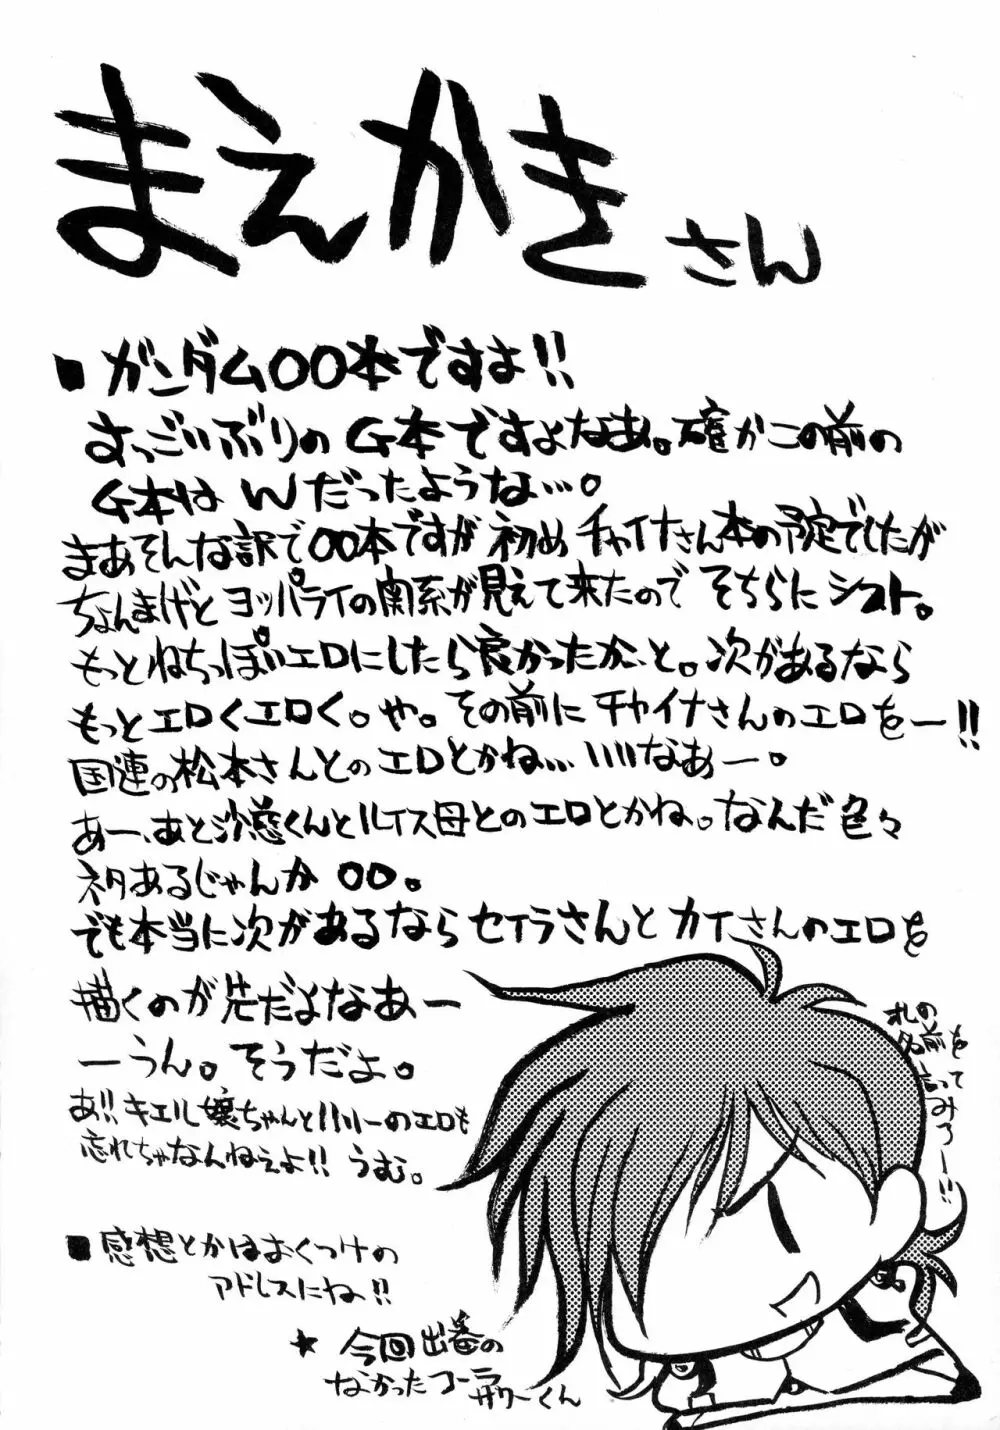 まえかきさん
■ガンダム００本ですよ!!
すっごいぶりのG本ですよなあ。確かこの前の
G本はWだったような…。
まあそんな訳で００本ですが初めチャイナさん本の予定でしたが
ちょんまげとヨッパライの関系が見えて来たのでそちらにシフト。
もっとねちっぽいエロにしたら良かったか、と。次があるなら
もっとエロくエロく。や。その前にチャイナさんのエロをー!!
国連の松本さんとのエロとかね…いいなあー。
あー、あと沙慈くんとルイス母とのエロとかね。なんだ色々
ネタあるじゃんか００。
でも本当に次があるならセイラさんとカイさんのエロを
描くのが先だよなあー
ーうん。そうだよ。
あ!!キエル嬢ちゃんとハリーのエロも
忘れちゃなんねぇよ!!うむ。
■感想とかはおくつけの
アドレスにね!!
★今回出番の
なかったコーラ
サワーくん
オレの
名前を
言って
みろー!!